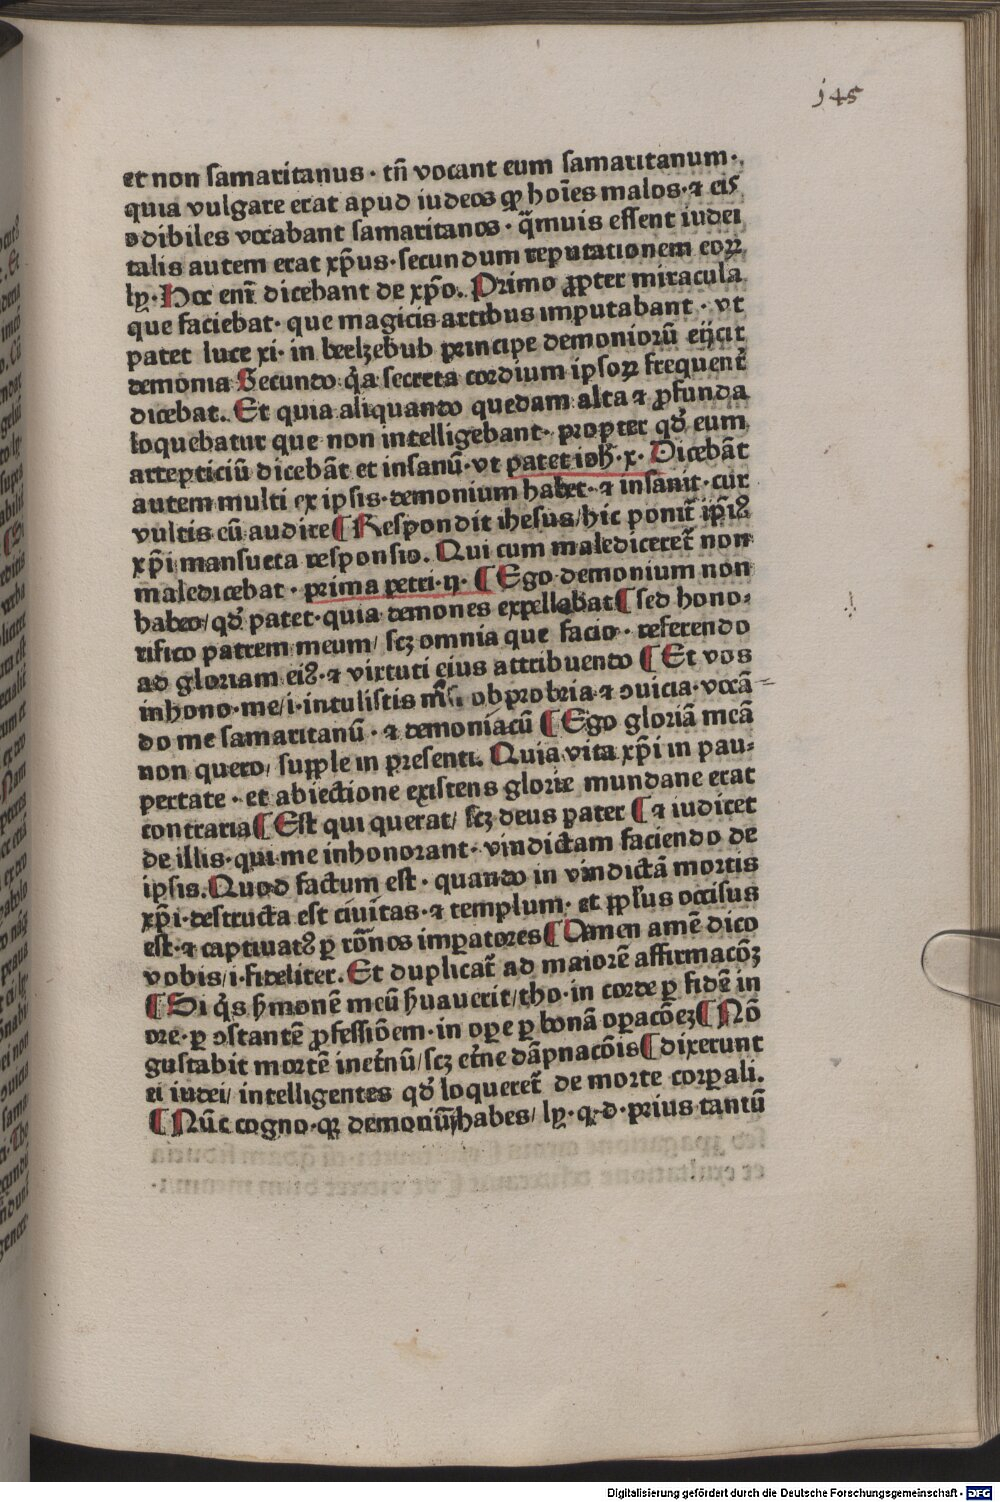 145
et non samaritanus · tñ vocant eum samaritanum ·
quia vulgare erat apud iudeos ꝙ hoīes malos · ⁊ eis
odibiles vocabant samaritanos · q̄muis essent iudei
talis autem erat xp̄us · secundum reputationem eoꝝ
ly · Hoc enī dicebant de xp̄o . Primo ꝓpter miracula
que faciebat · que magicis artibus imputabant · vt
patet luce xi · in beelzebub principe demoniorū eijcit
demonia Secundo q̇a secreta cordium ipsoꝝ frequent̄
dicebat . Et quia aliquando quedam alta ⁊ ꝓfunda
loquebatur que non intelligebant · propter qđ eum
artepticiū dicebāt et insanū · vt patet ioh̄ · x · Dicebāt
autem multi ex ipsis · demonium habet · ⁊ insanit · cur
vultis eū audire ¶ Respondit ihesus / hic ponit̄ ip̄iꝰ
xp̄i mansueta responsio . Qui cum malediceret̄ non
maledicebat · prima petri · ij · ¶ Ego demonium non
habeo / qđ patet · quia demones expellebat ¶ sed hono⸗
rifico patrem meum / scꝫ omnia que facio · referendo
ad gloriam eiꝰ · ⁊ virtuti eius attribuendo ¶ Et vos
inhono · me / i · intulistis obprobria ⁊ ɔuicia · vocā⸗
do me samaritanū · ⁊ demoniacū ¶ Ego gloriā meā
non quero / supple in presenti . Quia vita xp̄i in pau⸗
pertate · et abiectione existens glorie mundane erat
contraria ¶ Est qui querat / scꝫ deus pater ¶ ⁊ iudicet
de illis · qui me inhonorant · vindictam faciendo de
ipsis . Quod factum est · quando in vindictā mortis
xp̄i · destructa est ciuitas · ⁊ templum · et ꝓp̄lus occisus
est · ⁊ captiuatꝰ ꝑ rōnos imꝑatores ¶ Amen amē dico
vobis / i · fideliter . Et duplicat̄ ad maiorē affirmacōꝫ
¶ Si q̇s ẜmonē meū ẜuauerit / tho · in corde ꝑ fidē in
ore · ꝑ ɔstantē ꝓfessiōem · in oꝑe ꝑ bonā oꝑacōeꝫ ¶ Nō
gustabit mortē inet̄nū / scꝫ et̄ne dāpnacōis ¶ dixerunt
ei iudei / intelligentes qđ loqueret̄ de morte corꝑali .
¶ Nūc cogno · qꝛ demoniū habes / ly · q · d · prius tantū
Digitalisierung gefördert durch die Deutsche Forschungsgemeinschaft - DFG